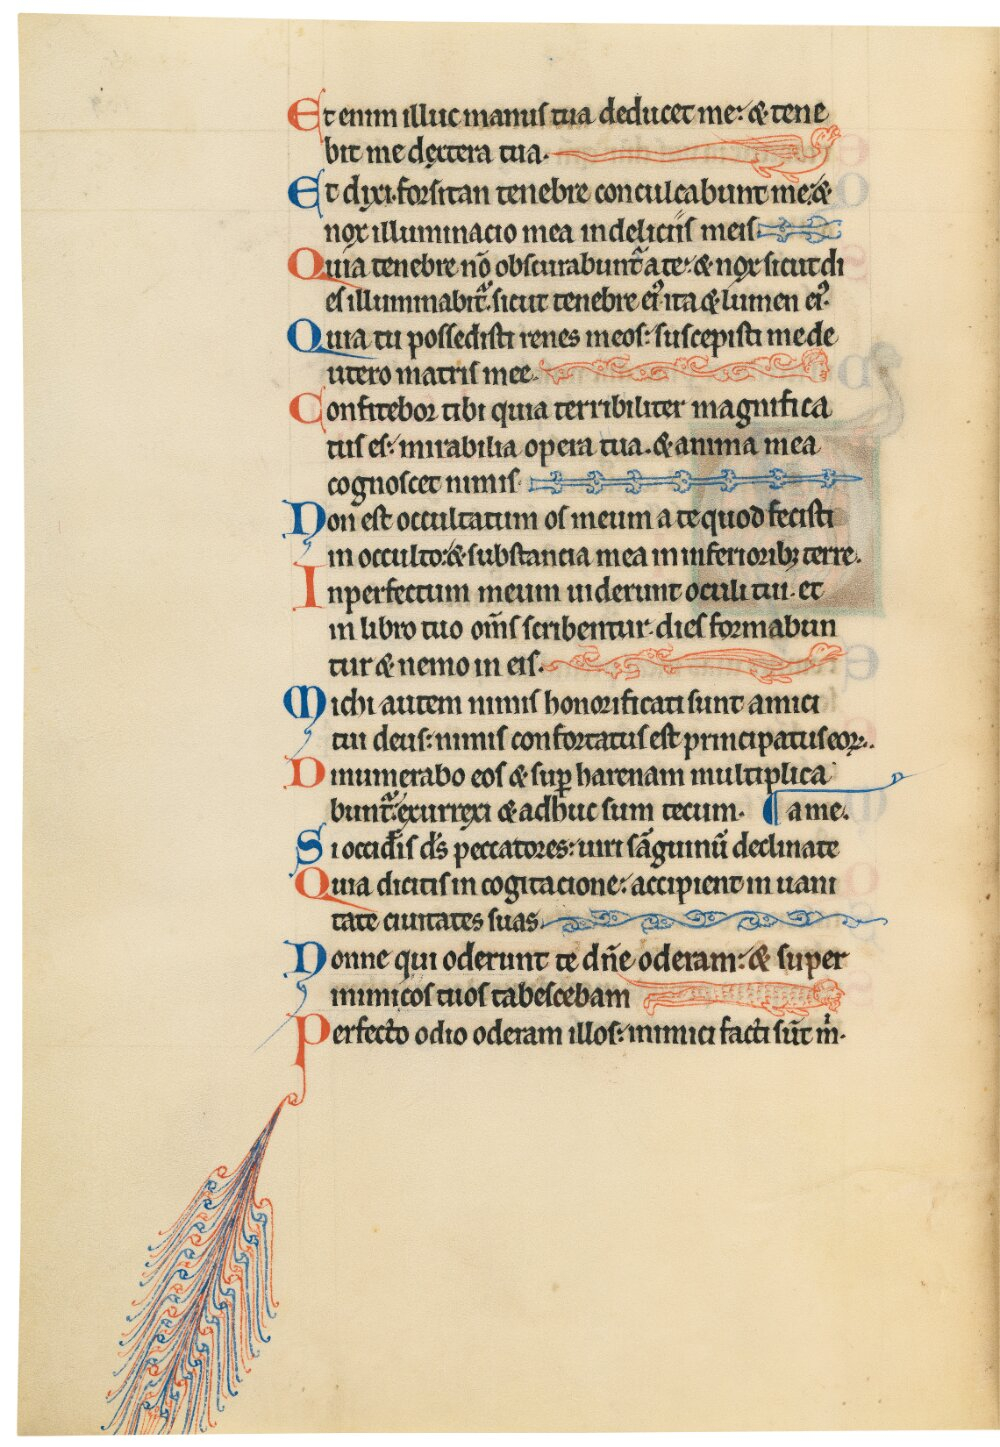 Et enim illuc manus tua deducet me: & tene
bit me dextera tua.
Et dixi.forsitan tenebre conculcabunt me:&
nox illuminacio mea in deliciis meis.
Quia tenebre nō obscurabunt᷑ a te: & nox sicut di
es illuminabit᷑. sicut tenebre ei᷒ ita & lumen ei᷒.
Quia tu possedisti renes meos: suscepisti me de
utero matris mee.
Confitebor tibi quia terribiliter magnifica
tus es: mirabilia opera tua. & anima mea
cognoscet nimis.
Non est occultatum os meum a te quod fecisti
in occulto:& substancia mea in inferiorib; terre.
Inperfectum meum uiderunt oculi tui. et
in libro tuo om̄s scribentur. dies formabun
tur & nemo in eis.
Michi autem nimis honorificati sunt amici
tui deus: nimis confortatus est principatus eoꝝ.
Dinumerabo eos & suꝑ harenam multiplica
bunt᷑: exurrexi & adhuc sum tecum.
a me.
Si occid̄is d̄s peccatores: uiri sāguinū declinate
Quia dicitis in cogitacione: accipient in uani
tate ciuitates suas.
Nonne qui oderunt te dn̄e oderam: & super
inimicos tuos tabescebam
Perfecto odio oderam illos: inimici facti sūt m̄.